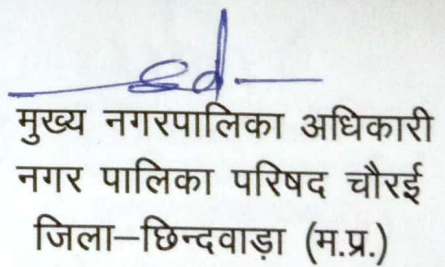 sd-
मुख्य नगरपालिका अधिकारी
नगर पालिका परिषद चौरई
जिला–छिन्दवाड़ा (म.प्र.)